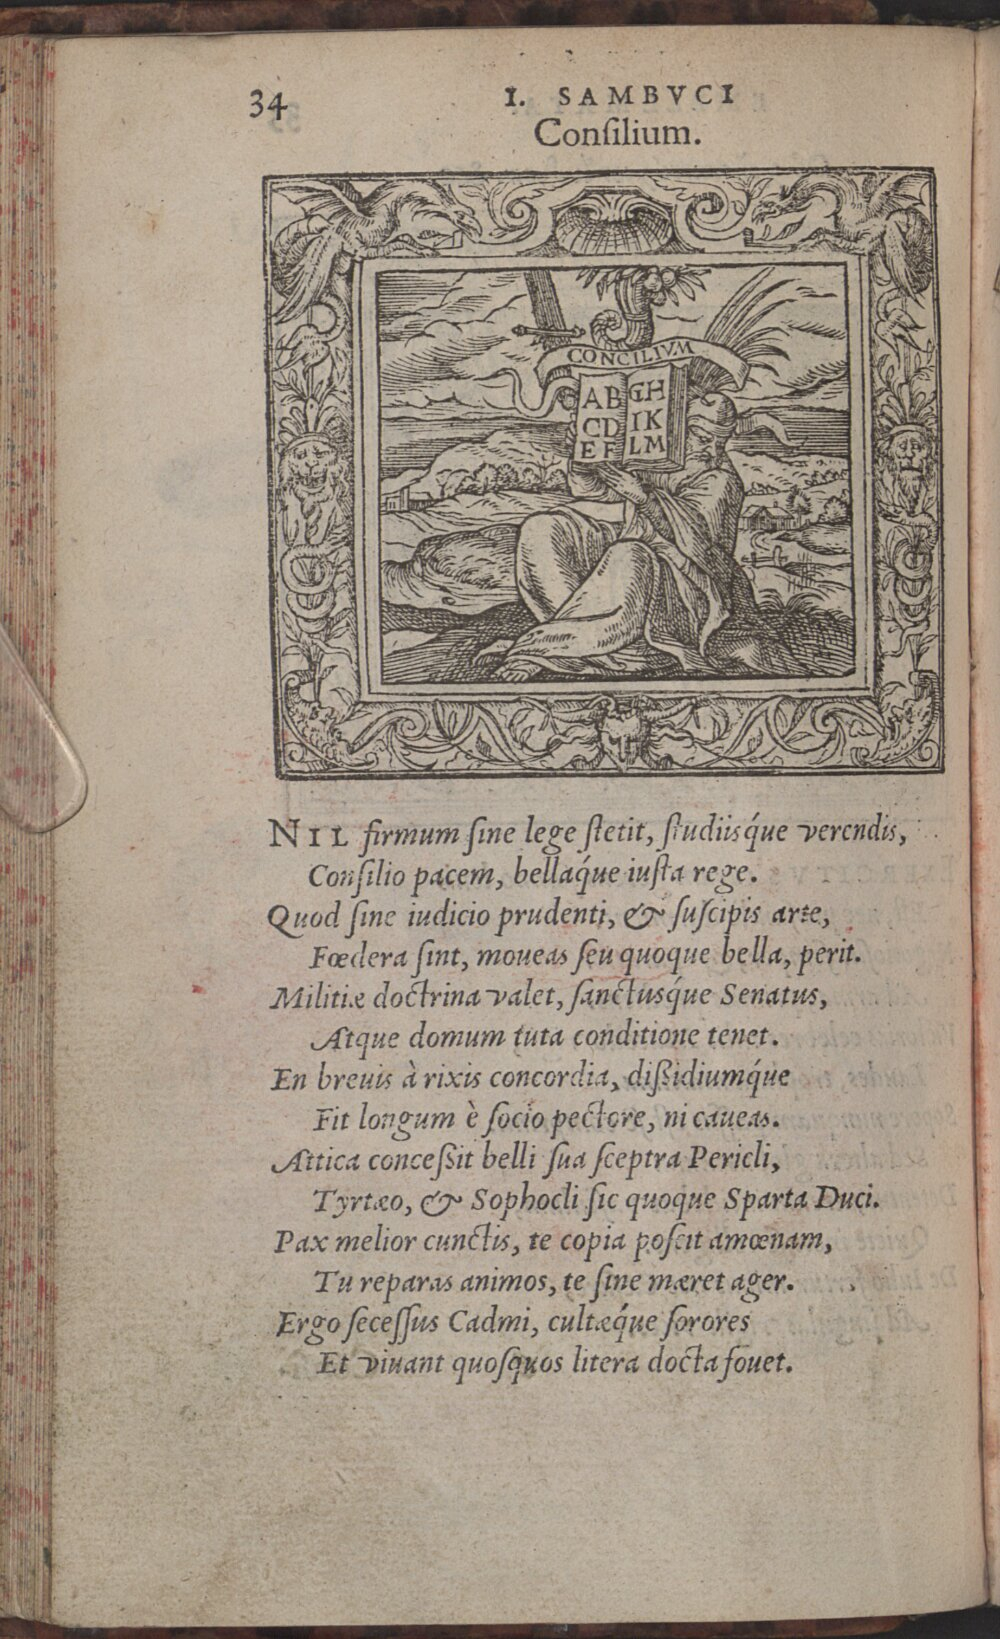 34
I. SAMBVCI
Conſilium.
CONCILIVM
AB GH
CD IK
EF LM
NIL firmum ſine lege ſtetit, ſtudiisq́ue verendis,
Conſilio pacem, bellaq́ue iuſta rege.
Quod ſine iudicio prudenti, & ſuſcipis arte,
Fœdera ſint, moueas ſeu quoque bella, perit.
Militiæ doctrina valet, ſanctusq́ue Senatus,
Atque domum tuta conditione tenet.
En breuis à rixis concordia, diſsidiumq́ue
Fit longum è ſocio pectore, ni caueas.
Attica conceſsit belli ſua ſceptra Pericli,
Tyrtæo, & Sophocli ſic quoque Sparta Duci.
Pax melior cunctis, te copia poſcit amœnam,
Tu reparas animos, te ſine mæret ager.
Ergo ſeceſſus Cadmi, cultæq́ue ſorores
Et viuant quoſquos litera docta fouet.